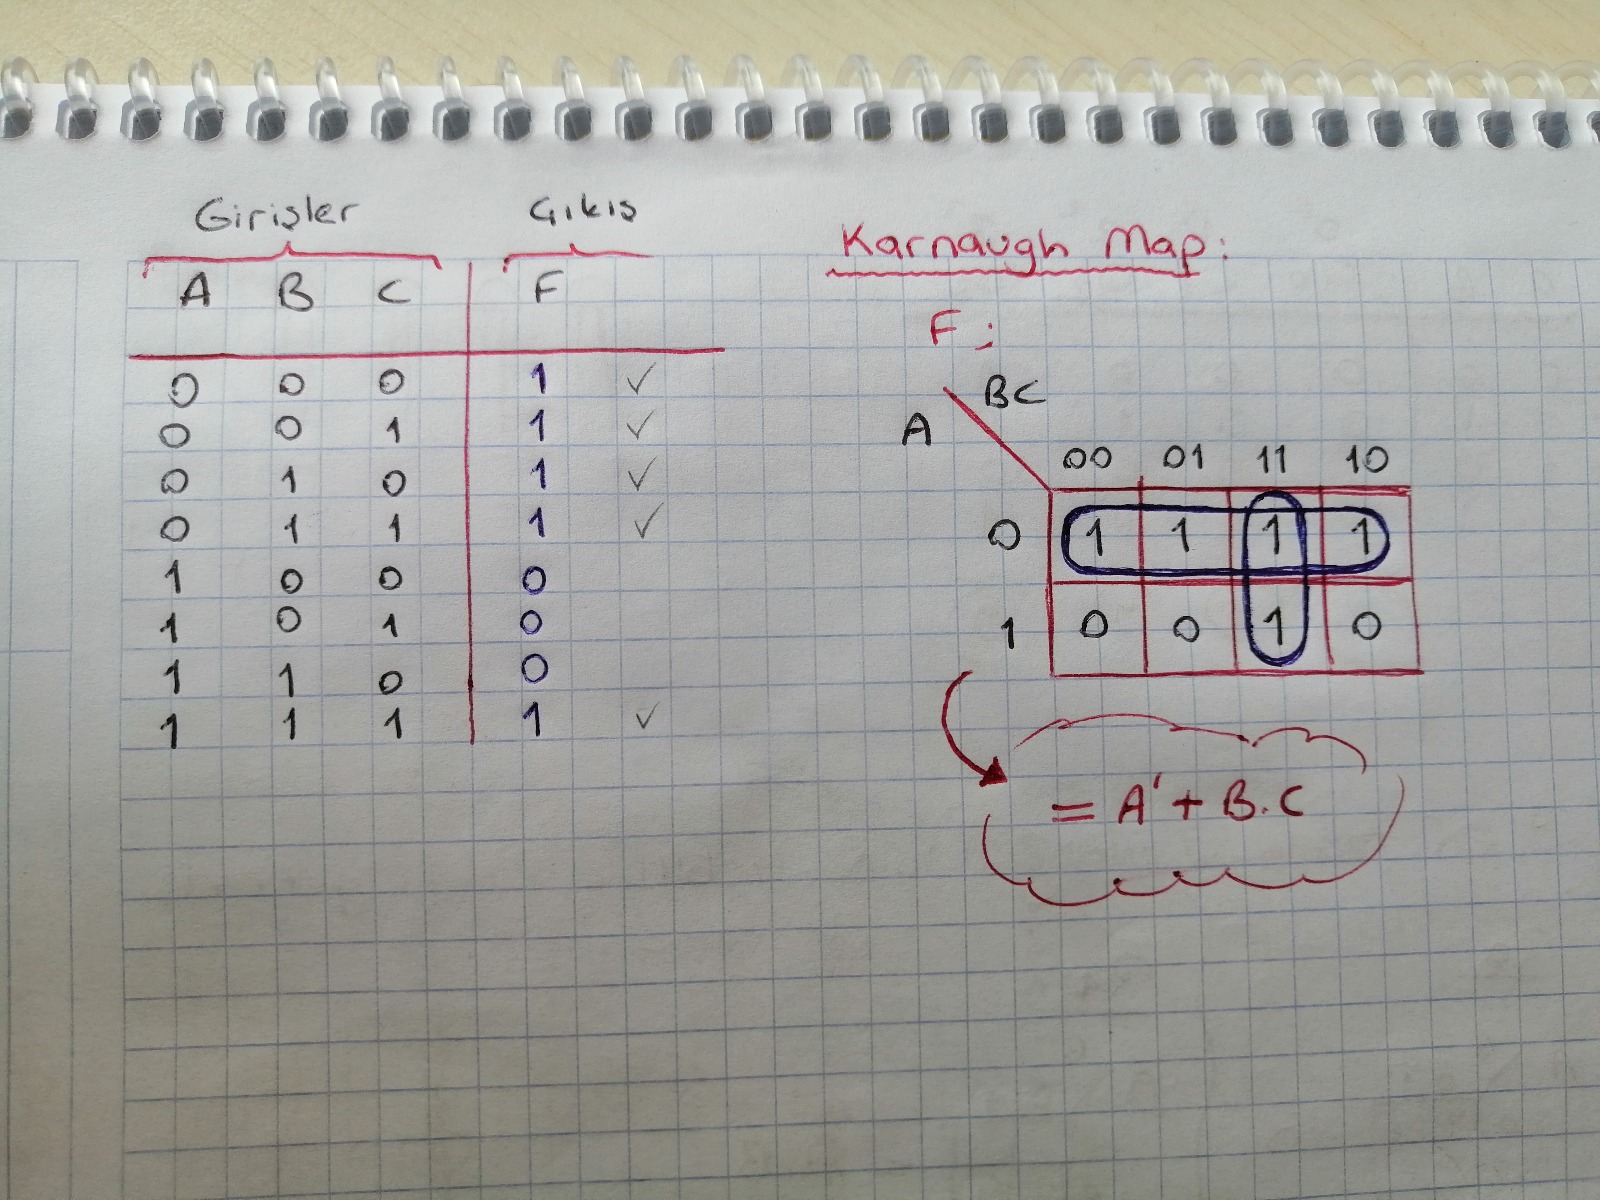 Girişler Çıkış
A B C F
0 0 0 1 ✓
0 0 1 1 ✓
0 1 0 1 ✓
0 1 1 1 ✓
1 0 0 0
1 0 1 0
1 1 0 0
1 1 1 1 ✓
Karnaugh Map:
F:
BC
A
00 01 11 10
0 1 1 1 1
1 0 0 1 0
= A' + B.C